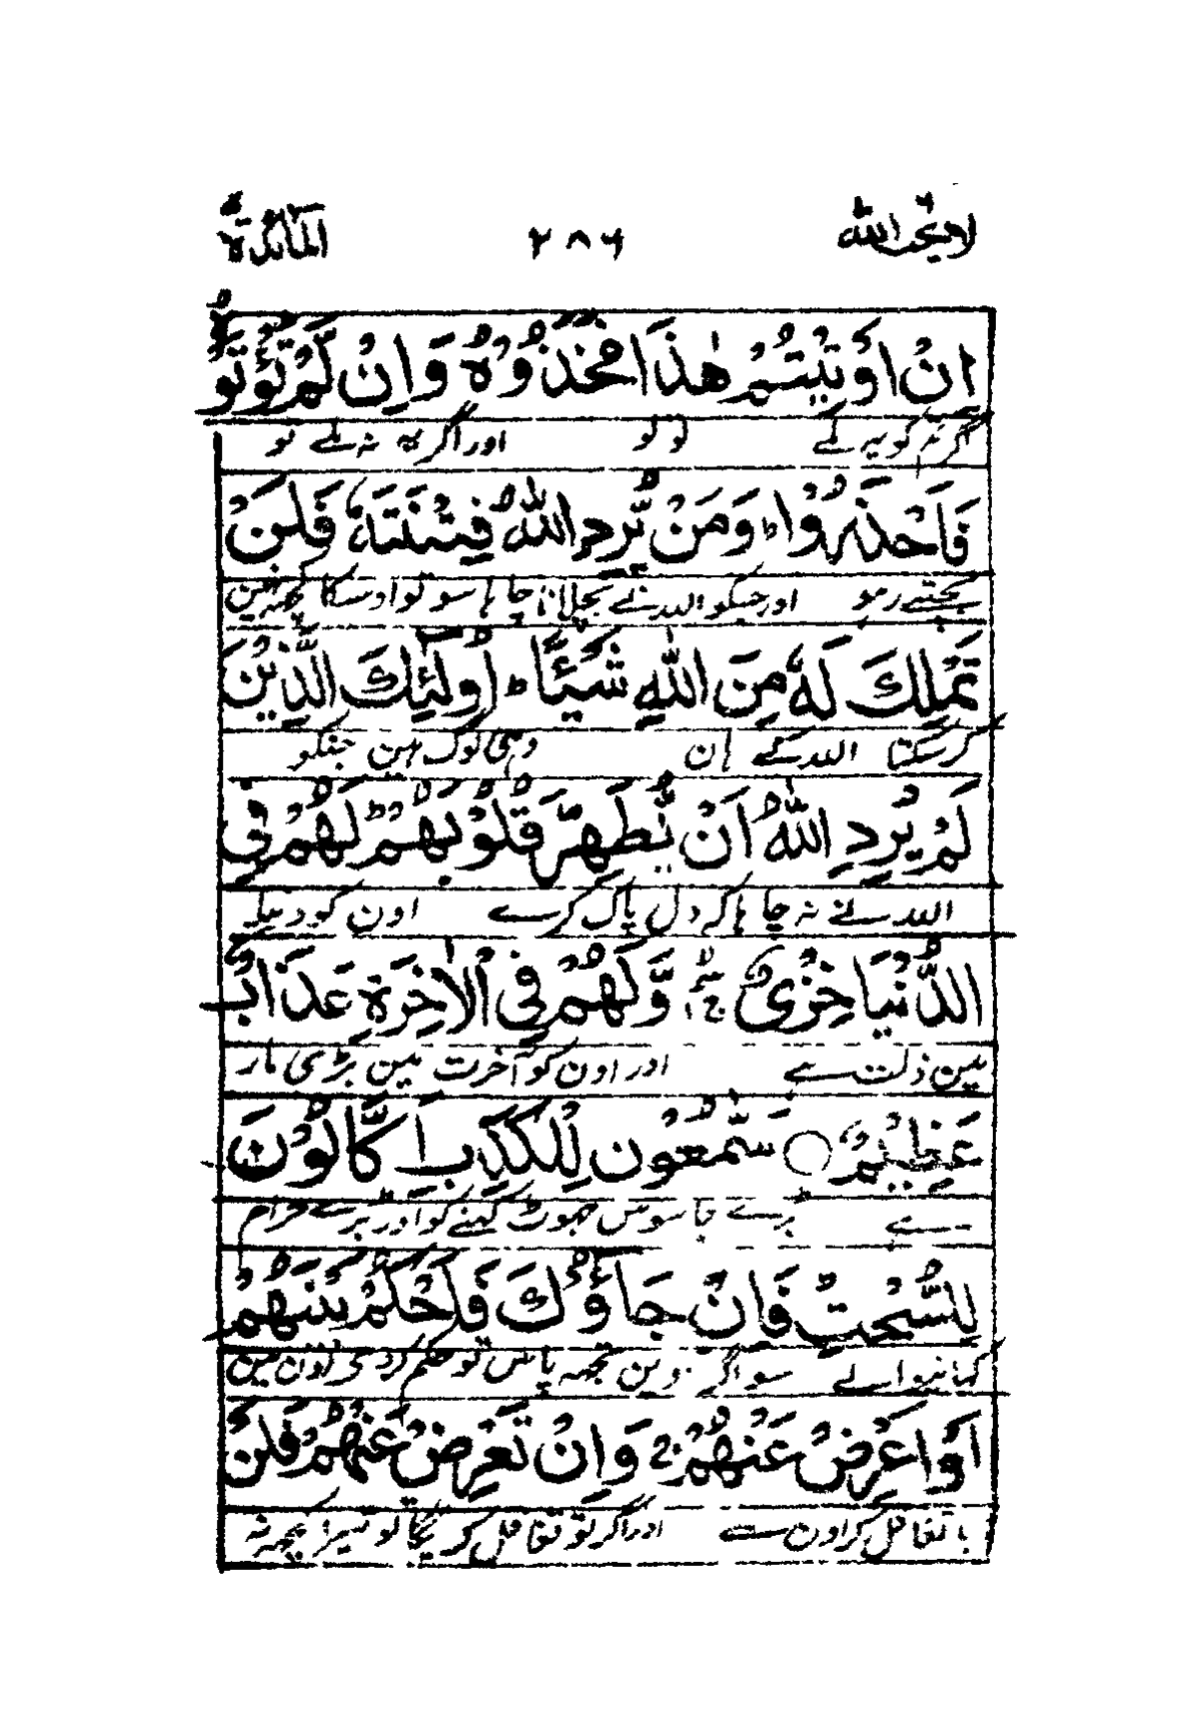 لایحب الله ۲۸۶ المائدة
اِنْ اُوْتِیْتُمْ هٰذَا فَخُذُوْهُ وَاِنْ لَّمْ تُؤْتَوْهُ
اگر تم کو یہ ملے تو لو اور اگر یہ نہ ملے تو
فَاحْذَرُوْا ؕ وَمَنْ یُّرِدِ اللّٰهُ فِتْنَتَهٗ فَلَنْ
بچتے رہو اور جسکو اللہ نے بچلانا چاہا سو تو اوسکا کچھ نہین
تَمْلِكَ لَهٗ مِنَ اللّٰهِ شَیْـًٔا ؕ اُولٰٓئِكَ الَّذِیْنَ
کر سکتا اللہ کے ہان وہی لوگ ہین جنکو
لَمْ یُرِدِ اللّٰهُ اَنْ یُّطَهِّرَ قُلُوْبَهُمْ ؕ لَهُمْ فِی
اللہ نے نہ چاہا کہ دل پاک کرے اون کو دنیا
الدُّنْیَا خِزْیٌ ۚ وَّلَهُمْ فِی الْاٰخِرَةِ عَذَابٌ
مین ذلت ہے اور اون کو آخرت مین بڑی مار
عَظِیْمٌ ○ سَمّٰعُوْنَ لِلْكَذِبِ اَكّٰلُوْنَ
ہے بڑے جاسوس جھوٹ کہنے کو اور بڑے حرام
لِلسُّحْتِ ؕ فَاِنْ جَآءُوْكَ فَاحْكُمْ بَیْنَهُمْ
کھانیوالے سو اگر آوین تجھہ پاس تو حکم کر دے اون مین
اَوْ اَعْرِضْ عَنْهُمْ ۚ وَاِنْ تُعْرِضْ عَنْهُمْ فَلَنْ
یا تغافل کر اون سے اور اگر تو تغافل کریگا تو تیرا کچھہ نہ